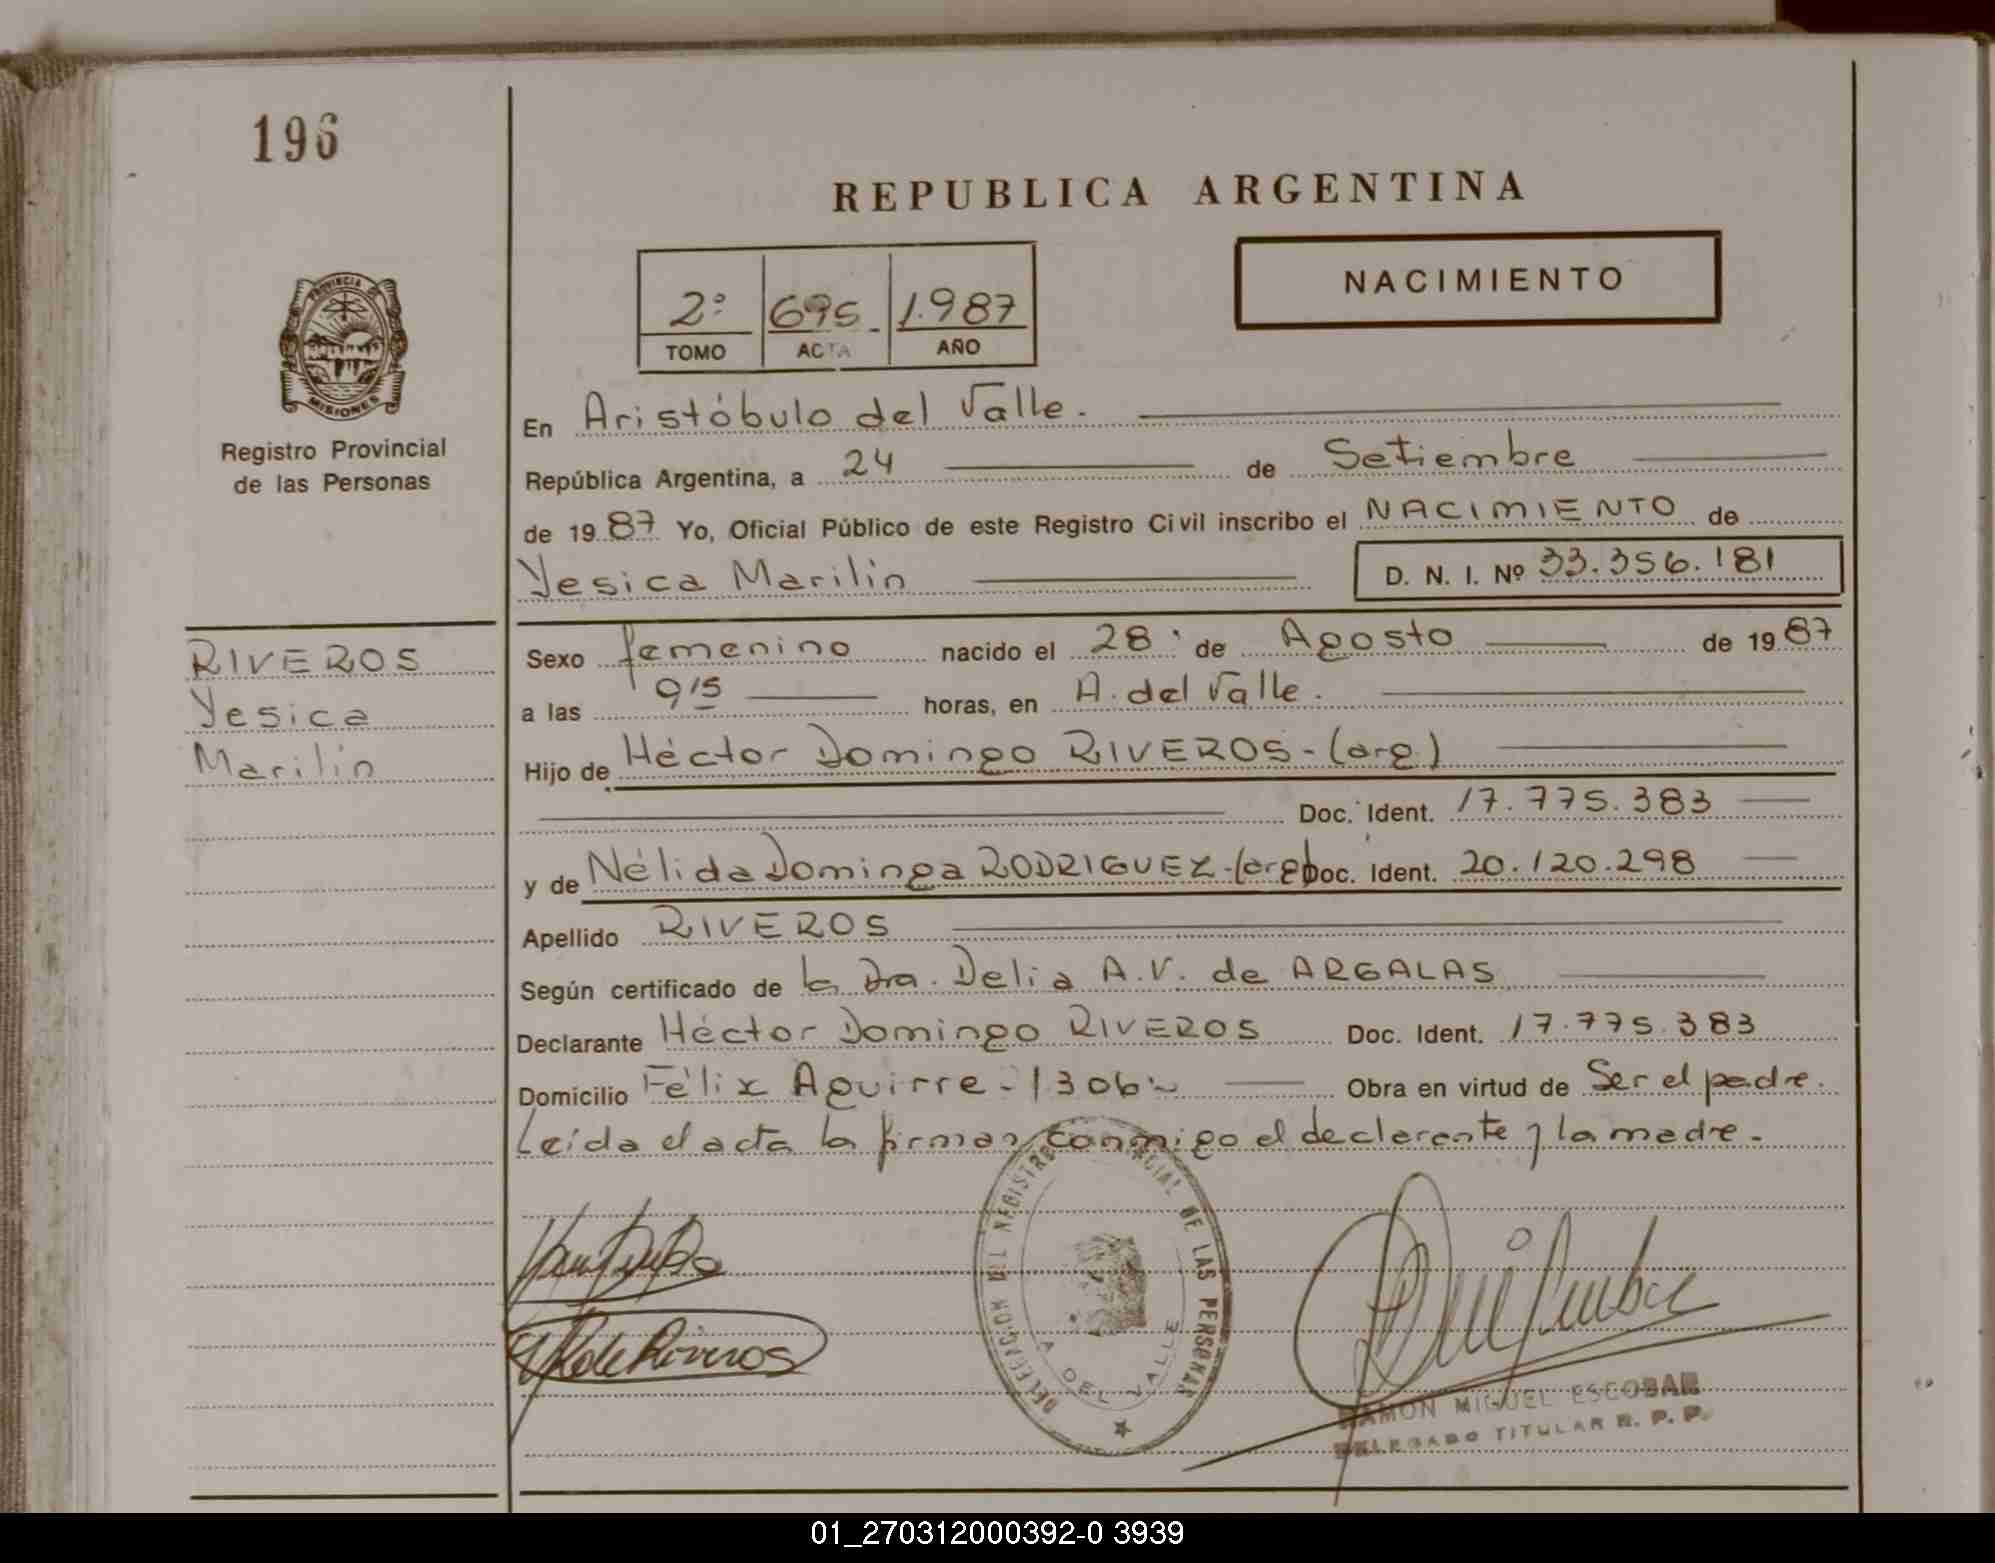 196
REPUBLICA ARGENTINA
PROVINCIA D
MISIONES
Registro Provincial
de las Personas
2º 695- 1.987
TOMO ACTA AÑO
NACIMIENTO
En Aristóbulo del Valle.
República Argentina, a 24 de Setiembre
de 1987 Yo, Oficial Público de este Registro Civil inscribo el NACIMIENTO de
Yesica Marilin D. N. I. Nº 33.356.181
RIVEROS
Yesica
Marilin
Sexo femenino nacido el 28 de Agosto de 1987
a las 9 15 horas, en A. del Valle.
Hijo de Héctor Domingo RIVEROS-(arg.)
Doc. Ident. 17.775.383
y de Nélida Dominga RODRIGUEZ-(arg) Doc. Ident. 20.120.298
Apellido RIVEROS
Según certificado de la Dra. Delia A.V. de ARGALAS
Declarante Héctor Domingo RIVEROS Doc. Ident. 17.775.383
Domicilio Félix Aguirre-1306~ Obra en virtud de Ser el padre.
Leída el acta la firman conmigo el declarante y la madre.
de Riveros
DELEGACION DEL REGISTRO PROVINCIAL DE LAS PERSONAS
A DEL VALLE
RAMON MIGUEL ESCOBAR
DELEGADO TITULAR R. P. P.
01_270312000392-0 3939